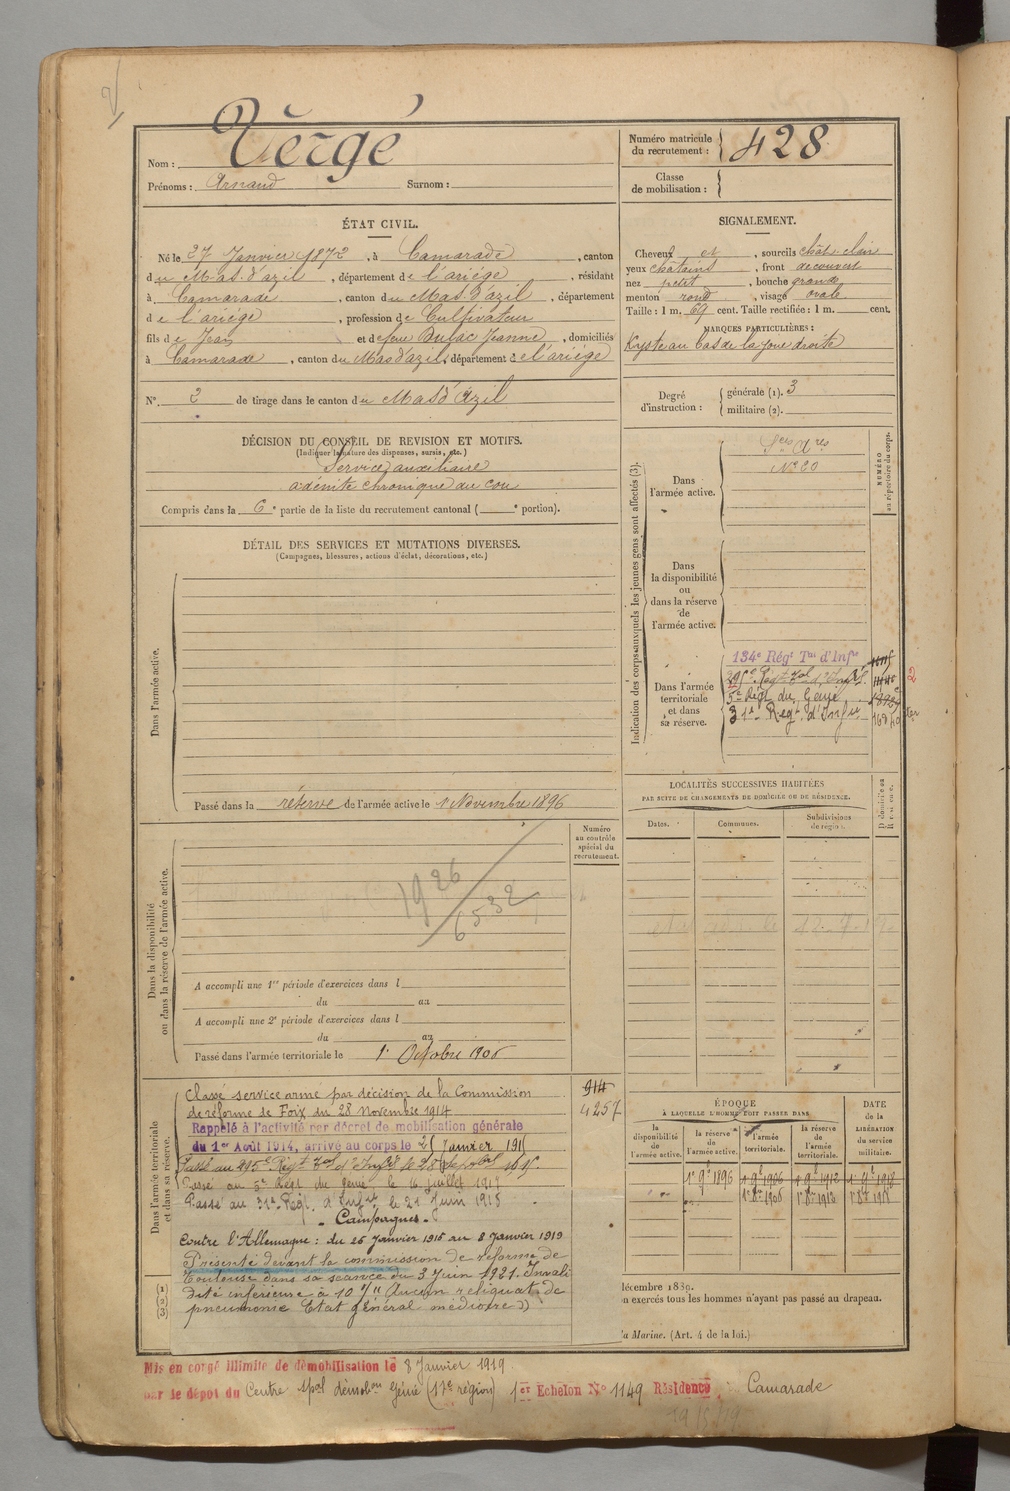 Nom : Vergé
Prénoms : Arnaud Surnom :
Numéro matricule du recrutement : 428
Classe de mobilisation :
ÉTAT CIVIL.
Né le 27 Janvier 1872, à Camarade, canton
du Mas-d'azil, département de l'ariége, résidant
à Camarade, canton du Mas-d'azil, département
de l'ariége, profession de Cultivateur
fils de Jean et de feue Dufac Jeanne, domiciliés
à Camarade, canton du Mas d'azil, département de l'ariége
N° 2 de tirage dans le canton du Mas d'Azil
SIGNALEMENT.
Cheveux et, sourcils chât. clair
yeux châtains, front découvert
nez petit, bouche grande
menton rond, visage ovale
Taille : 1 m. 69 cent. Taille rectifiée : 1 m. cent.
MARQUES PARTICULIÈRES :
Kyste au bas de la joue droite
Degré d'instruction : générale (1). 3
militaire (2).
DÉCISION DU CONSEIL DE REVISION ET MOTIFS.
(Indiquer la nature des dispenses, sursis, etc.)
Service auxiliaire
adénite chronique du cou
Compris dans la 6e partie de la liste du recrutement cantonal ( e portion).
DÉTAIL DES SERVICES ET MUTATIONS DIVERSES.
(Campagnes, blessures, actions d'éclat, décorations, etc.)
Dans l'armée active.
Passé dans la réserve de l'armée active le 1 Novembre 1896
Indication des corps auxquels les jeunes gens sont affectés (3).
NUMÉRO au répertoire du corps.
Dans l'armée active.
N° 20
Dans la disponibilité ou dans la réserve de l'armée active.
Dans l'armée territoriale et dans sa réserve.
134e Régt Tal d'Infie
5e Régt du Génie
31e Regt d'Infie
2
LOCALITÉS SUCCESSIVES HABITÉES
PAR SUITE DE CHANGEMENTS DE DOMICILE OU DE RÉSIDENCE.
Dates.
Communes.
Subdivisions de région.
Numéro au contrôle spécial du recrutement.
Dans la disponibilité ou dans la réserve de l'armée active.
1926
6532
A accompli une 1re période d'exercices dans l
du au
A accompli une 2e période d'exercices dans l
du au
Passé dans l'armée territoriale le 1r Octobre 1906
Dans l'armée territoriale et dans sa réserve.
914
4257
Classé service armé par décision de la Commission
de réforme de Foix du 28 Novembre 1914
Rappelé à l'activité par décret de mobilisation générale
du 1er Août 1914, arrivé au corps le 25 Janvier 191
Passé au 5e Régt du Génie le 16 juillet 1917
Passé au 31e Régt d'Infie le 21 Juin 1918
- Campagnes -
Contre l'Allemagne : du 25 Janvier 1915 au 8 Janvier 1919
Présenté devant la commission de réforme de
Toulouse dans sa séance du 3 Juin 1921. Invali
dité inférieure à 10 % Aucun reliquat de
pneumonie Etat général médiocre))
ÉPOQUE
À LAQUELLE L'HOMME DOIT PASSER DANS
la disponibilité de l'armée active.
la réserve de l'armée active.
l'armée territoriale.
la réserve de l'armée territoriale.
DATE de la LIBÉRATION du service militaire.
1r 9e 1896 1r 9e 1906 1r 9e 1912 1r 9e 1918
1r 8e 1906 1r 8e 1912 1r 8e 1918
décembre 1889.
n exercés tous les hommes n'ayant pas passé au drapeau.
la Marine. (Art. 4 de la loi.)
(1)
(2)
(3)
Mis en congé illimité de démobilisation le 8 Janvier 1919.
par le dépôt du Centre spal démobon Génie (17e région) 1er Echelon N° 1149 Résidence Camarade